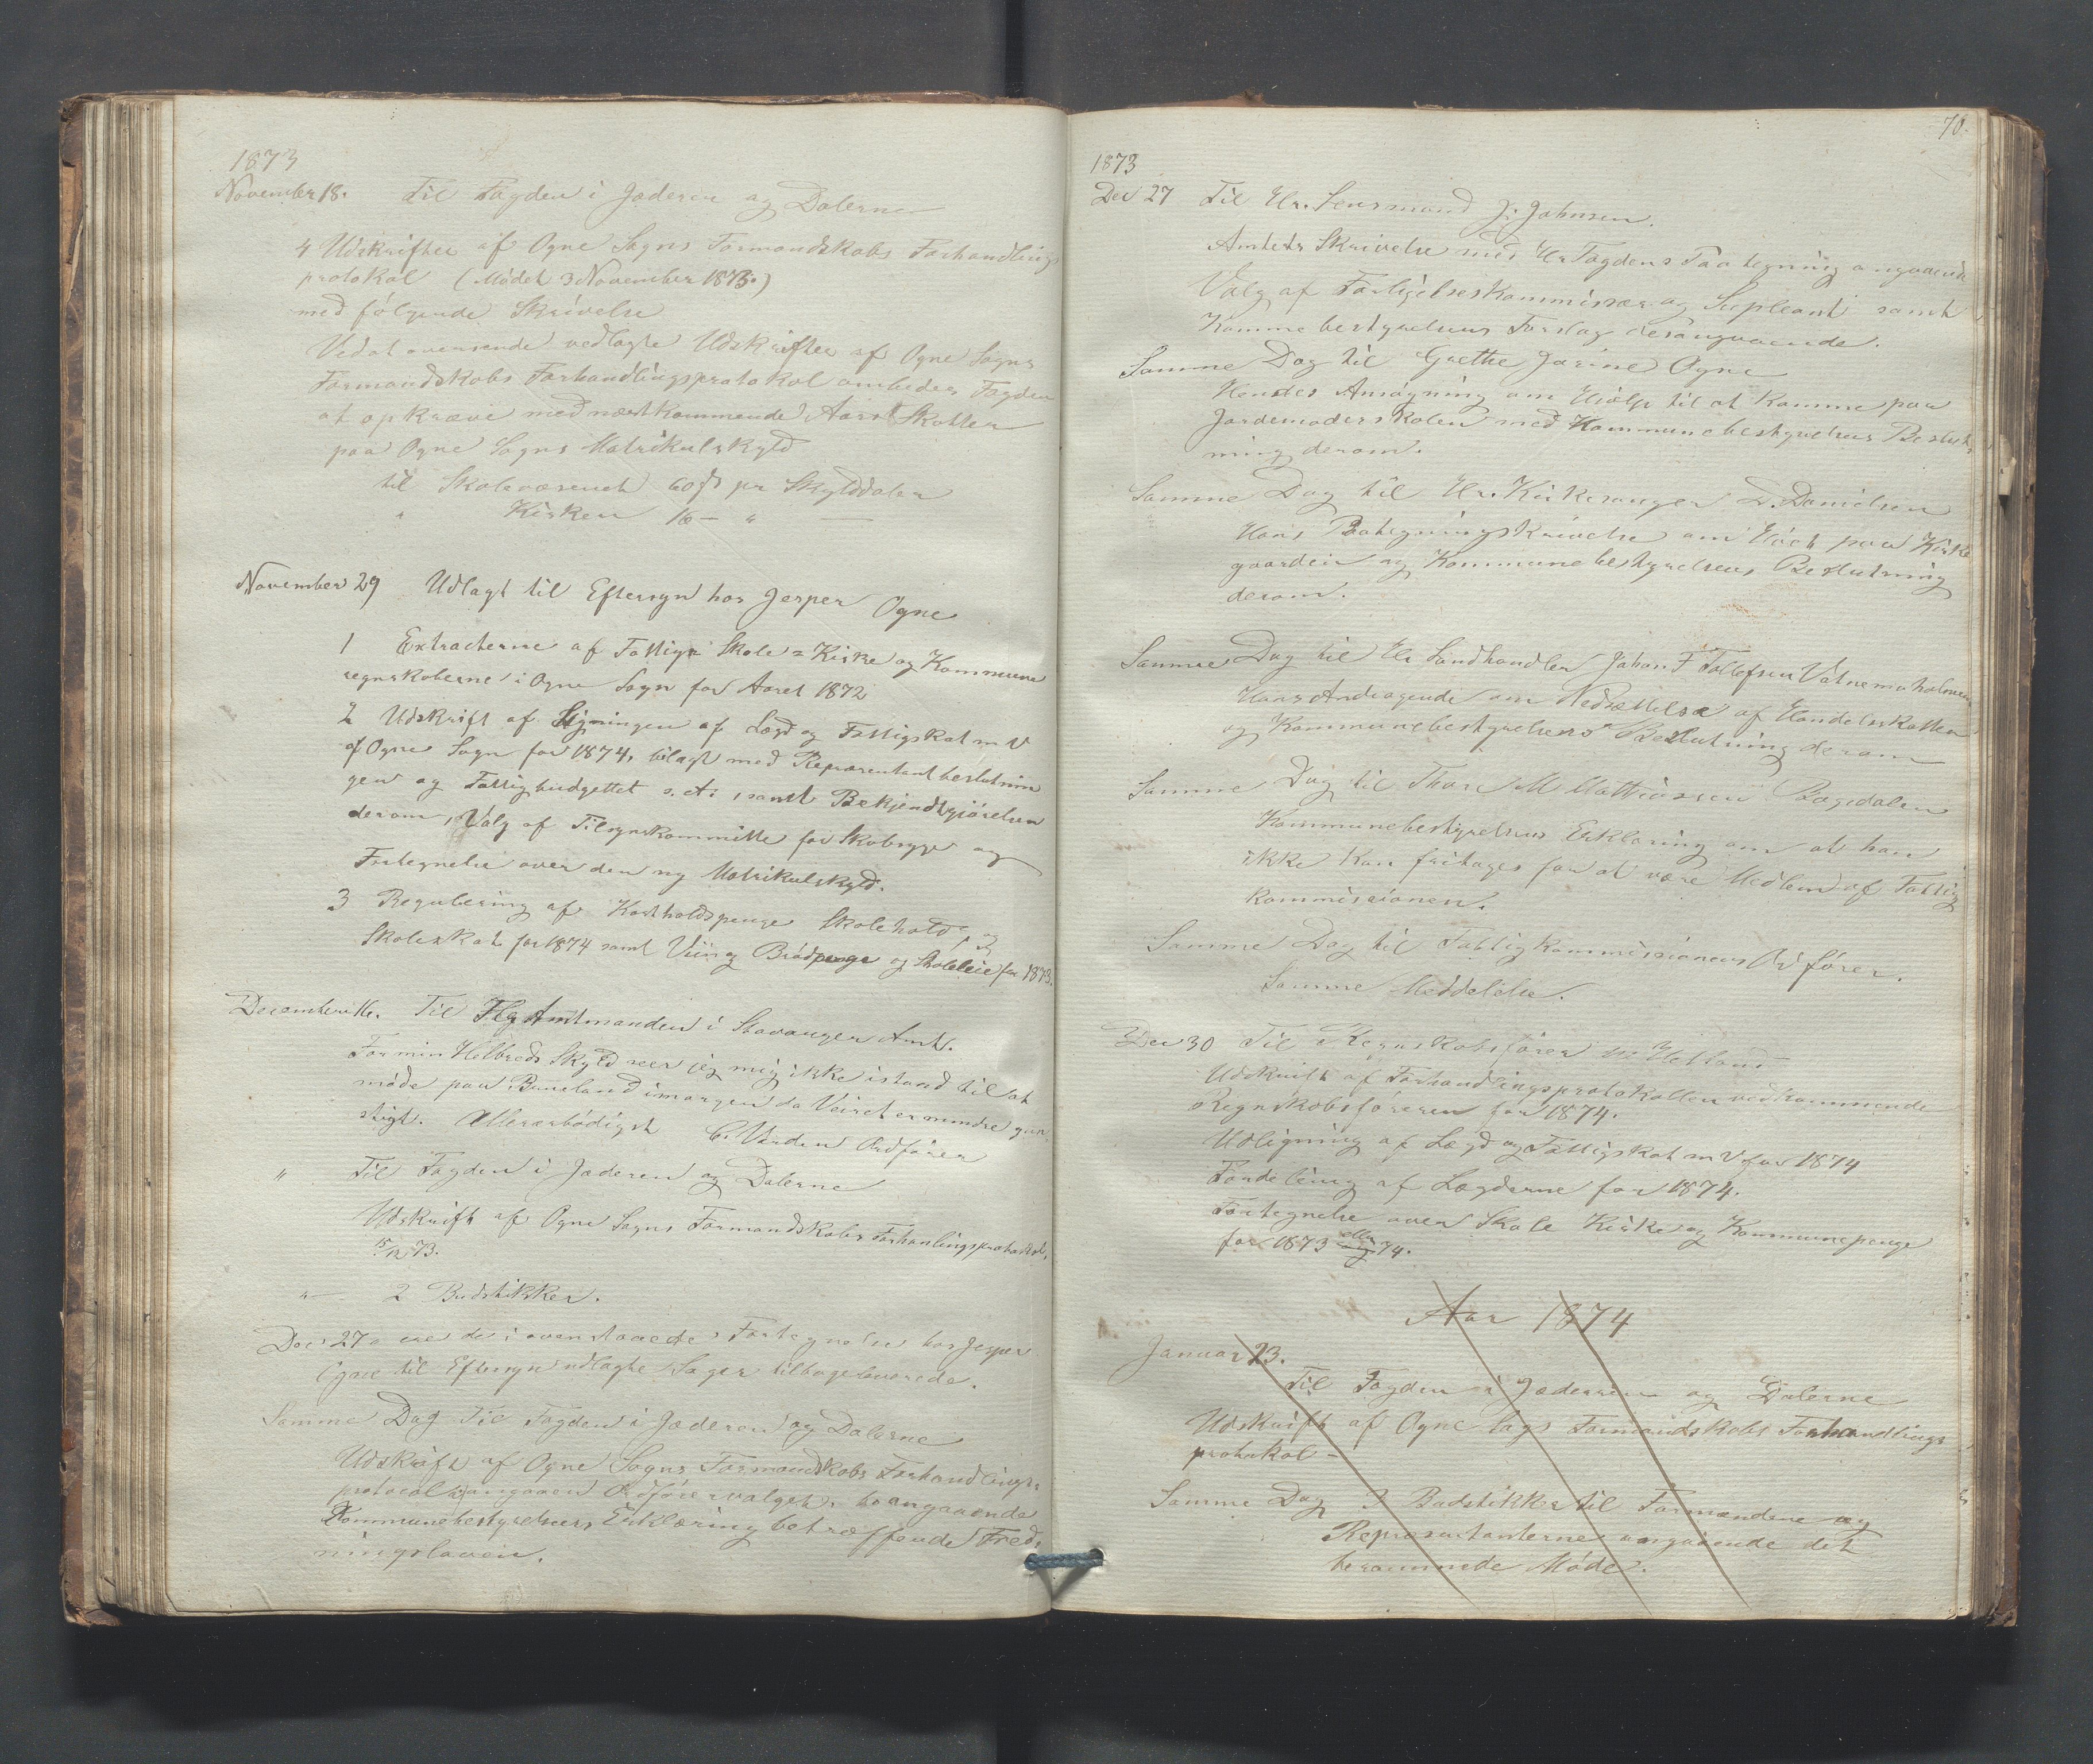 1873
November 18. Til Fogden i Jæderen og Dalerne
4 Udskrifter af Ogne Sogns Formandskabs Forhandlings
protokol (Mødet 3 November 1873.)
med følgende Skrivelse
Ved at oversende vedlagte Udskrifter af Ogne Sogns
Formandskabs Forhandlingsprotokol ombedes Fogden
at opkræve med næstkommende Aars Skatter
paa Ogne Sogns Matrikulskyld
til Skolevæsenet 60 ß pr Skylddaler
" Kirken 16 — " —
November 29 Udlagt til Eftersyn hos Jesper Ogne
1 Extracterne af Fattig- Skole = Kirke og Kommune
regnskaberne i Ogne Sogn for Aaret 1872
2 Udskrift af Ligningen af Lægd og Fattigskat m V
af Ogne Sogn for 1874, bilagt med Repræsentantbeslutnin
gen og Fattigbudgettet s. st. , samt Bekjendtgjørelsen
derom, Valg af Tilsynskommitte for Skobsyge og
Fortegnelse over den ny Matrikulskyld.
3 Regulering af Kostholdspenge Skolehold, og
Skoleskat for 1874 samt Viin og Brødpenge og Skoleleie for 1873.
December 16. Til Hr Amtmanden i Stavanger Amt.
For min Helbreds Skyld seer jeg mig ikke istand til at
møde paa Bueland imorgen da Veiret er mindre gun-
stigt. Allerærbødigst Ordfører
" Til Fogden i Jæderen og Dalerne
Udskrift af Ogne Sogns Formandskabs Forhanlingsprotokol,
15/12 73.
" — 2 Budstikker.
Dec 27 ere de i ovenstaaede Fortegnelse hos Jesper
Ogne til Eftersyn udlagte Sager tilbageleverede.
Samme Dag Til Fogden i Jæderen og Dalerne
Udskrift af Ogne Sogns Formandskabs Forhandlings-
protocol angaaen Ordførervalget, angaaende
Kommunebestyrelsens Erklæring betræffende Fred-
ningsloven.
70.
1873
Dec 27 Til Hr. Lensmand J. Johnsen.
Amtets Skrivelse med Hr Fogdens Paategning angaaende
Valg af Forligelseskommissær og Supleant samt
Kommebestyrelsens Forslag desangaaende.
Samme Dag til Grethe Jorine Ogne
Hendes Ansøgning om Hjælp til at komme paa
Jordemoderskolen med Kommunebestyrelsens Beslut-
ning derom.
Samme Dag til Hr. Kirkesanger D. Danielsen
Hans Paategningskrivelse om Høet paa Kirke
gaarden og Kommunebestyrelsens Beslutning
derom.
Samme Dag til Hr Landhandler Johan F Tollefsen Vatnemoholmen
Hans Andragende om Nedsættelse af Handelsskatten
og Kommunebestyrelsens Beslutning derom
Samme Dag til Thore M Mathiassen Bøgedalen
Kommunebestyrelsens Erklæring om at han
ikke kan fritages for at være Medlem af Fattig
kommissionen.
Samme Dag til Fattigkommissionens Ordfører.
Samme Meddelelse.
Dec 30 Til Regnskabsfører Hetland
Udskrift af Forhandlingsprotokollen vedkommende
Regnskabsføreren for 1874.
Udligning af Lægd og Fattigskat m V for 1874
Fordeling af Lægderne for 1874.
Fortegnelse over Skole Kirke og Kommunepenge
for 1873 eller 74.
Aar 1874
Januar 23.
Til Fogden i Jæderen og Dalerne
Udskrift af Ogne Sogs Formandskabs Forhandlings
protokol —
Samme Dag 3 Budstikker til Formændene og
Repræsentanterne angaaende det
berammede Møde.